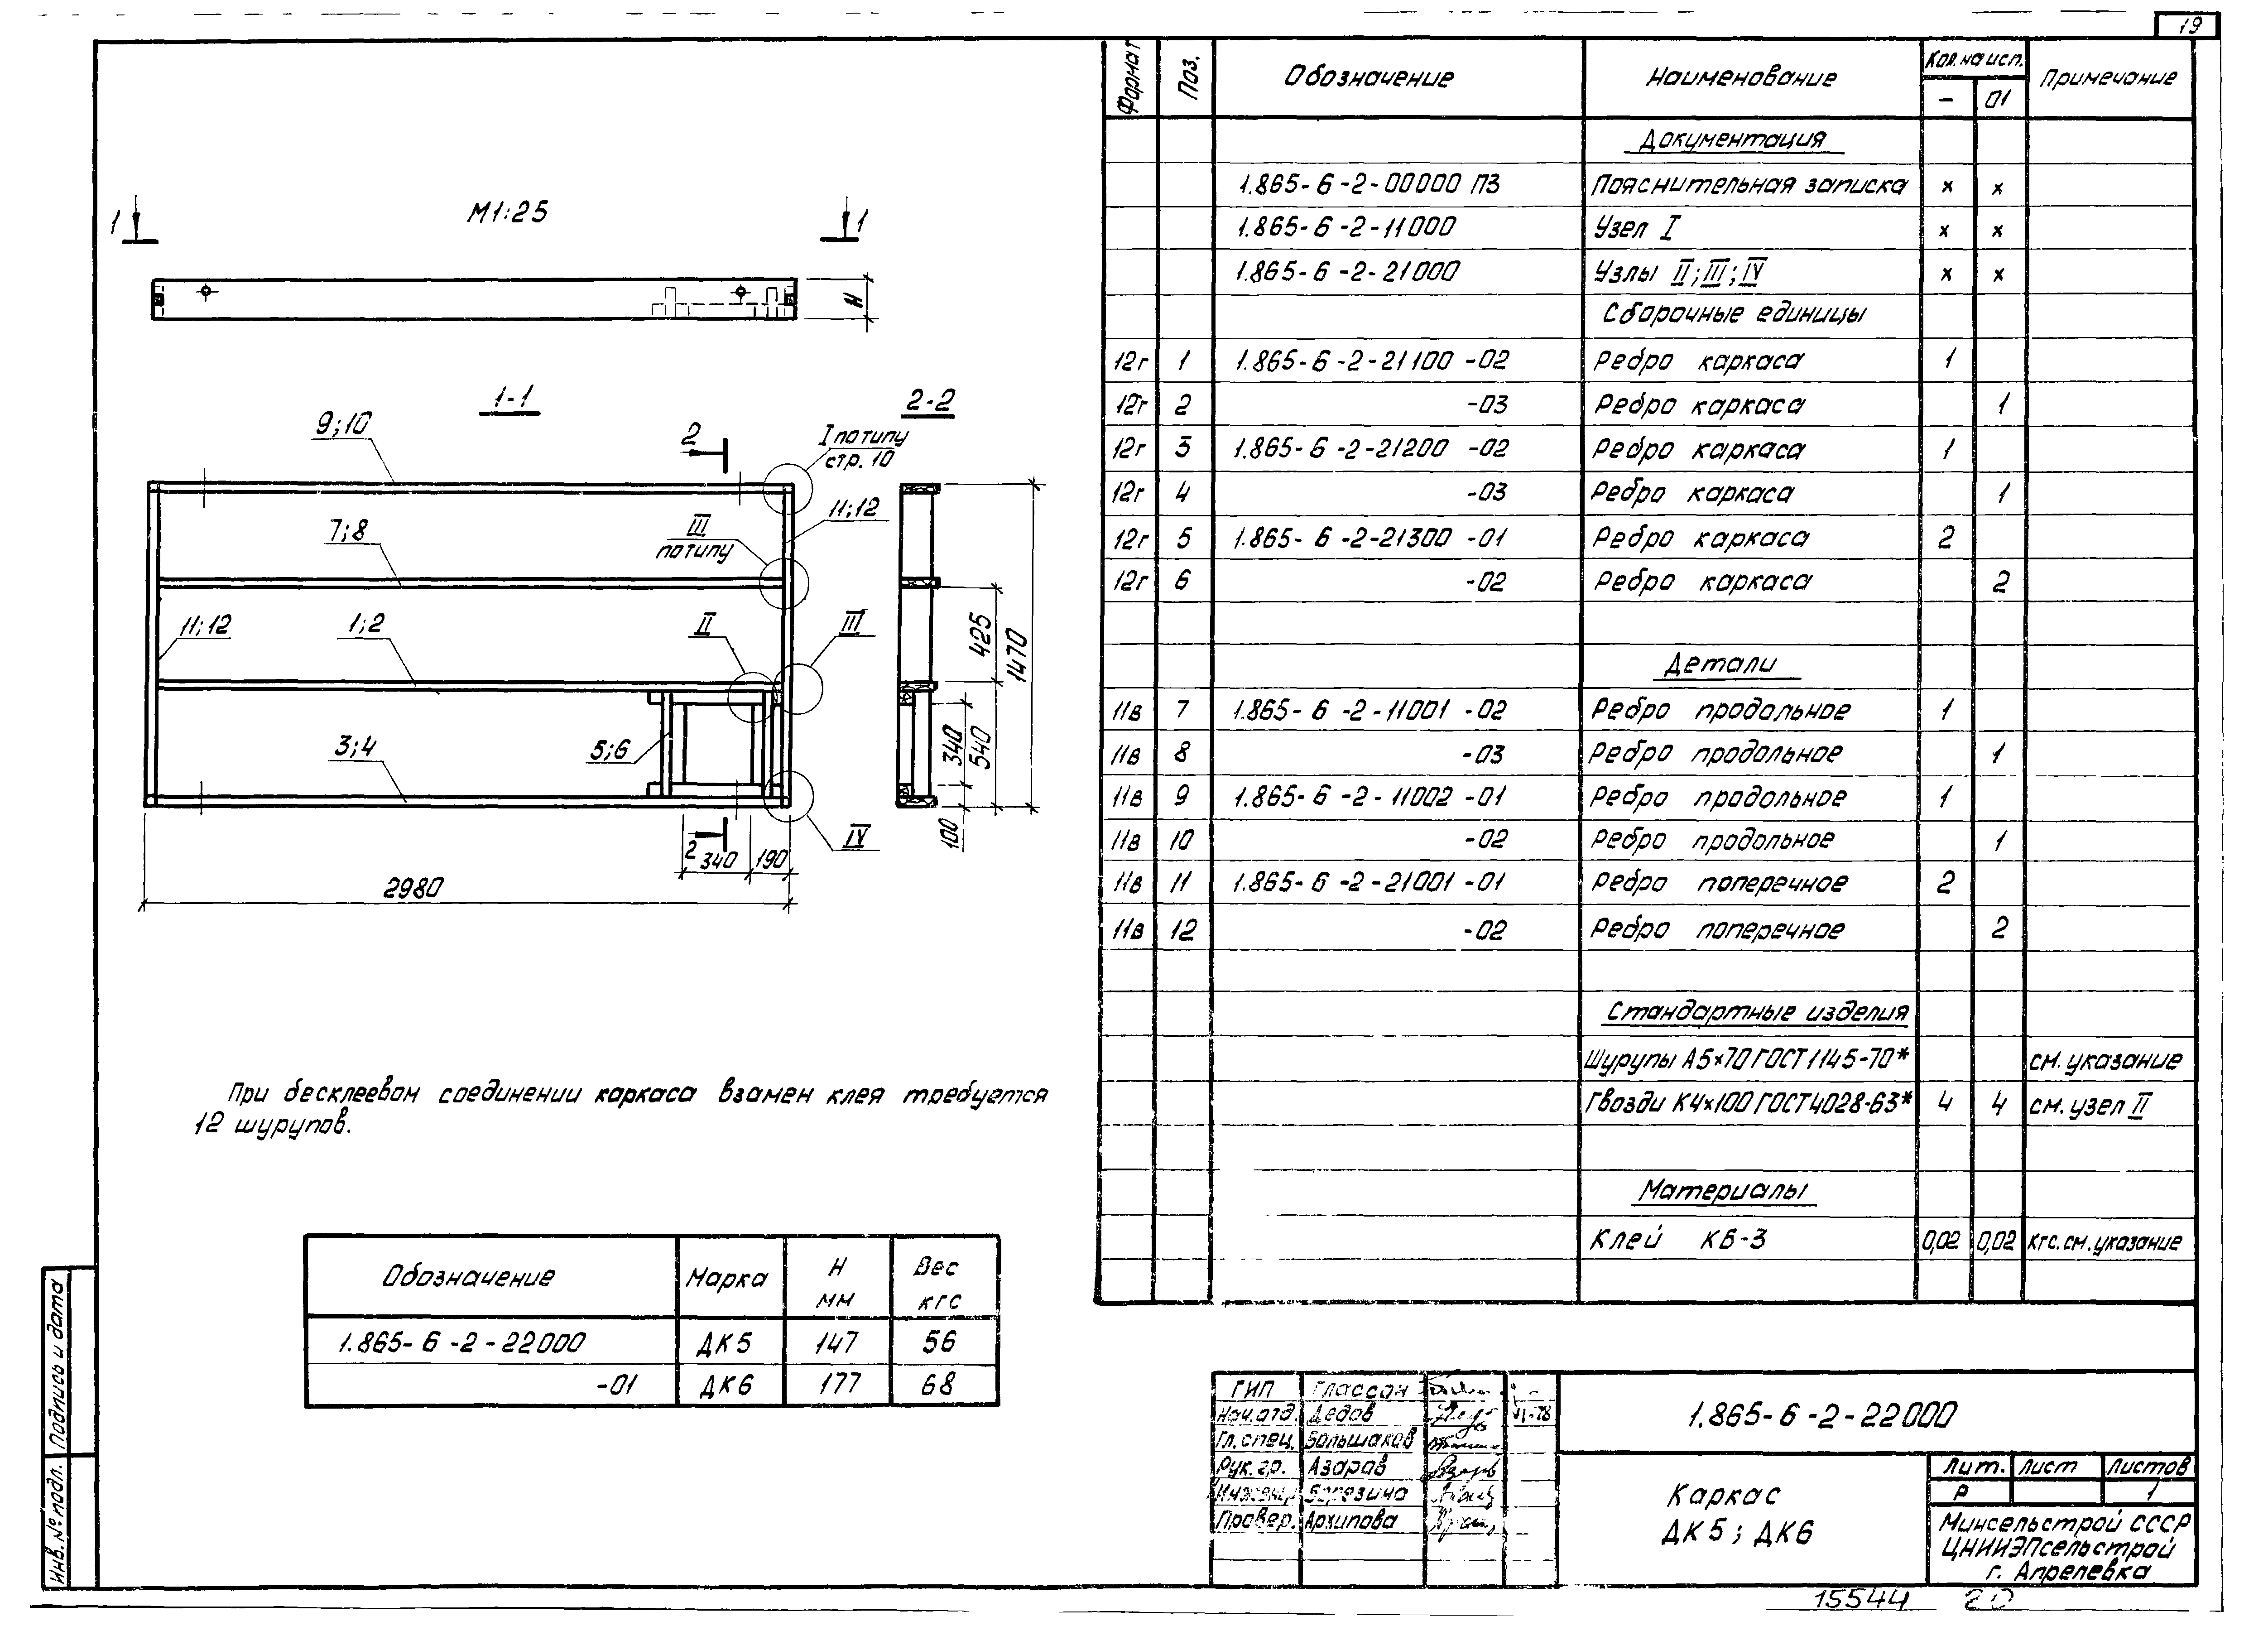 19
М1:25
1
1
Н
1-1
2-2
9;10
2
I по типу
стр. 10
11;12
7;8
III
по типу
11;12
1;2
II
III
425
1470
3;4
5;6
340
540
100
IV
2
340
190
2980
При бесклеевом соединении каркаса взамен клея требуется
12 шурупов.
Обозначение Марка Н мм Вес кгс
1.865-6-2-22000 ДК5 147 56
-01 ДК6 177 68
Формат Поз. Обозначение Наименование Кол. на исп. Примечание
- 01
Документация
1.865-6-2-00000 ПЗ Пояснительная записка х х
1.865-6-2-11000 Узел I х х
1.865-6-2-21000 Узлы II; III; IV х х
Сборочные единицы
12г 1 1.865-6-2-21100 -02 Ребро каркаса 1
12г 2 -03 Ребро каркаса 1
12г 3 1.865-6-2-21200 -02 Ребро каркаса 1
12г 4 -03 Ребро каркаса 1
12г 5 1.865-6-2-21300 -01 Ребро каркаса 2
12г 6 -02 Ребро каркаса 2
Детали
11в 7 1.865-6-2-11001 -02 Ребро продольное 1
11в 8 -03 Ребро продольное 1
11в 9 1.865-6-2-11002 -01 Ребро продольное 1
11в 10 -02 Ребро продольное 1
11в 11 1.865-6-2-21001 -01 Ребро поперечное 2
11в 12 -02 Ребро поперечное 2
Стандартные изделия
Шурупы А5х70 ГОСТ 1145-70* см. указание
Гвозди К4х100 ГОСТ 4028-63* 4 4 см. узел II
Материалы
Клей КБ-3 0,02 0,02 кгс. см. указание
ГИП Глассон
Нач. отд. Дедов VI-78
Гл. спец. Большаков
Рук. гр. Азаров
Инженер Березина
Провер. Архипова
1.865-6-2-22000
Каркас
ДК5; ДК6
Лит. Лист Листов
Р 1
Минсельстрой СССР
ЦНИИЭПсельстрой
г. Апрелевка
Инв. № подл. Подпись и дата
15544 20